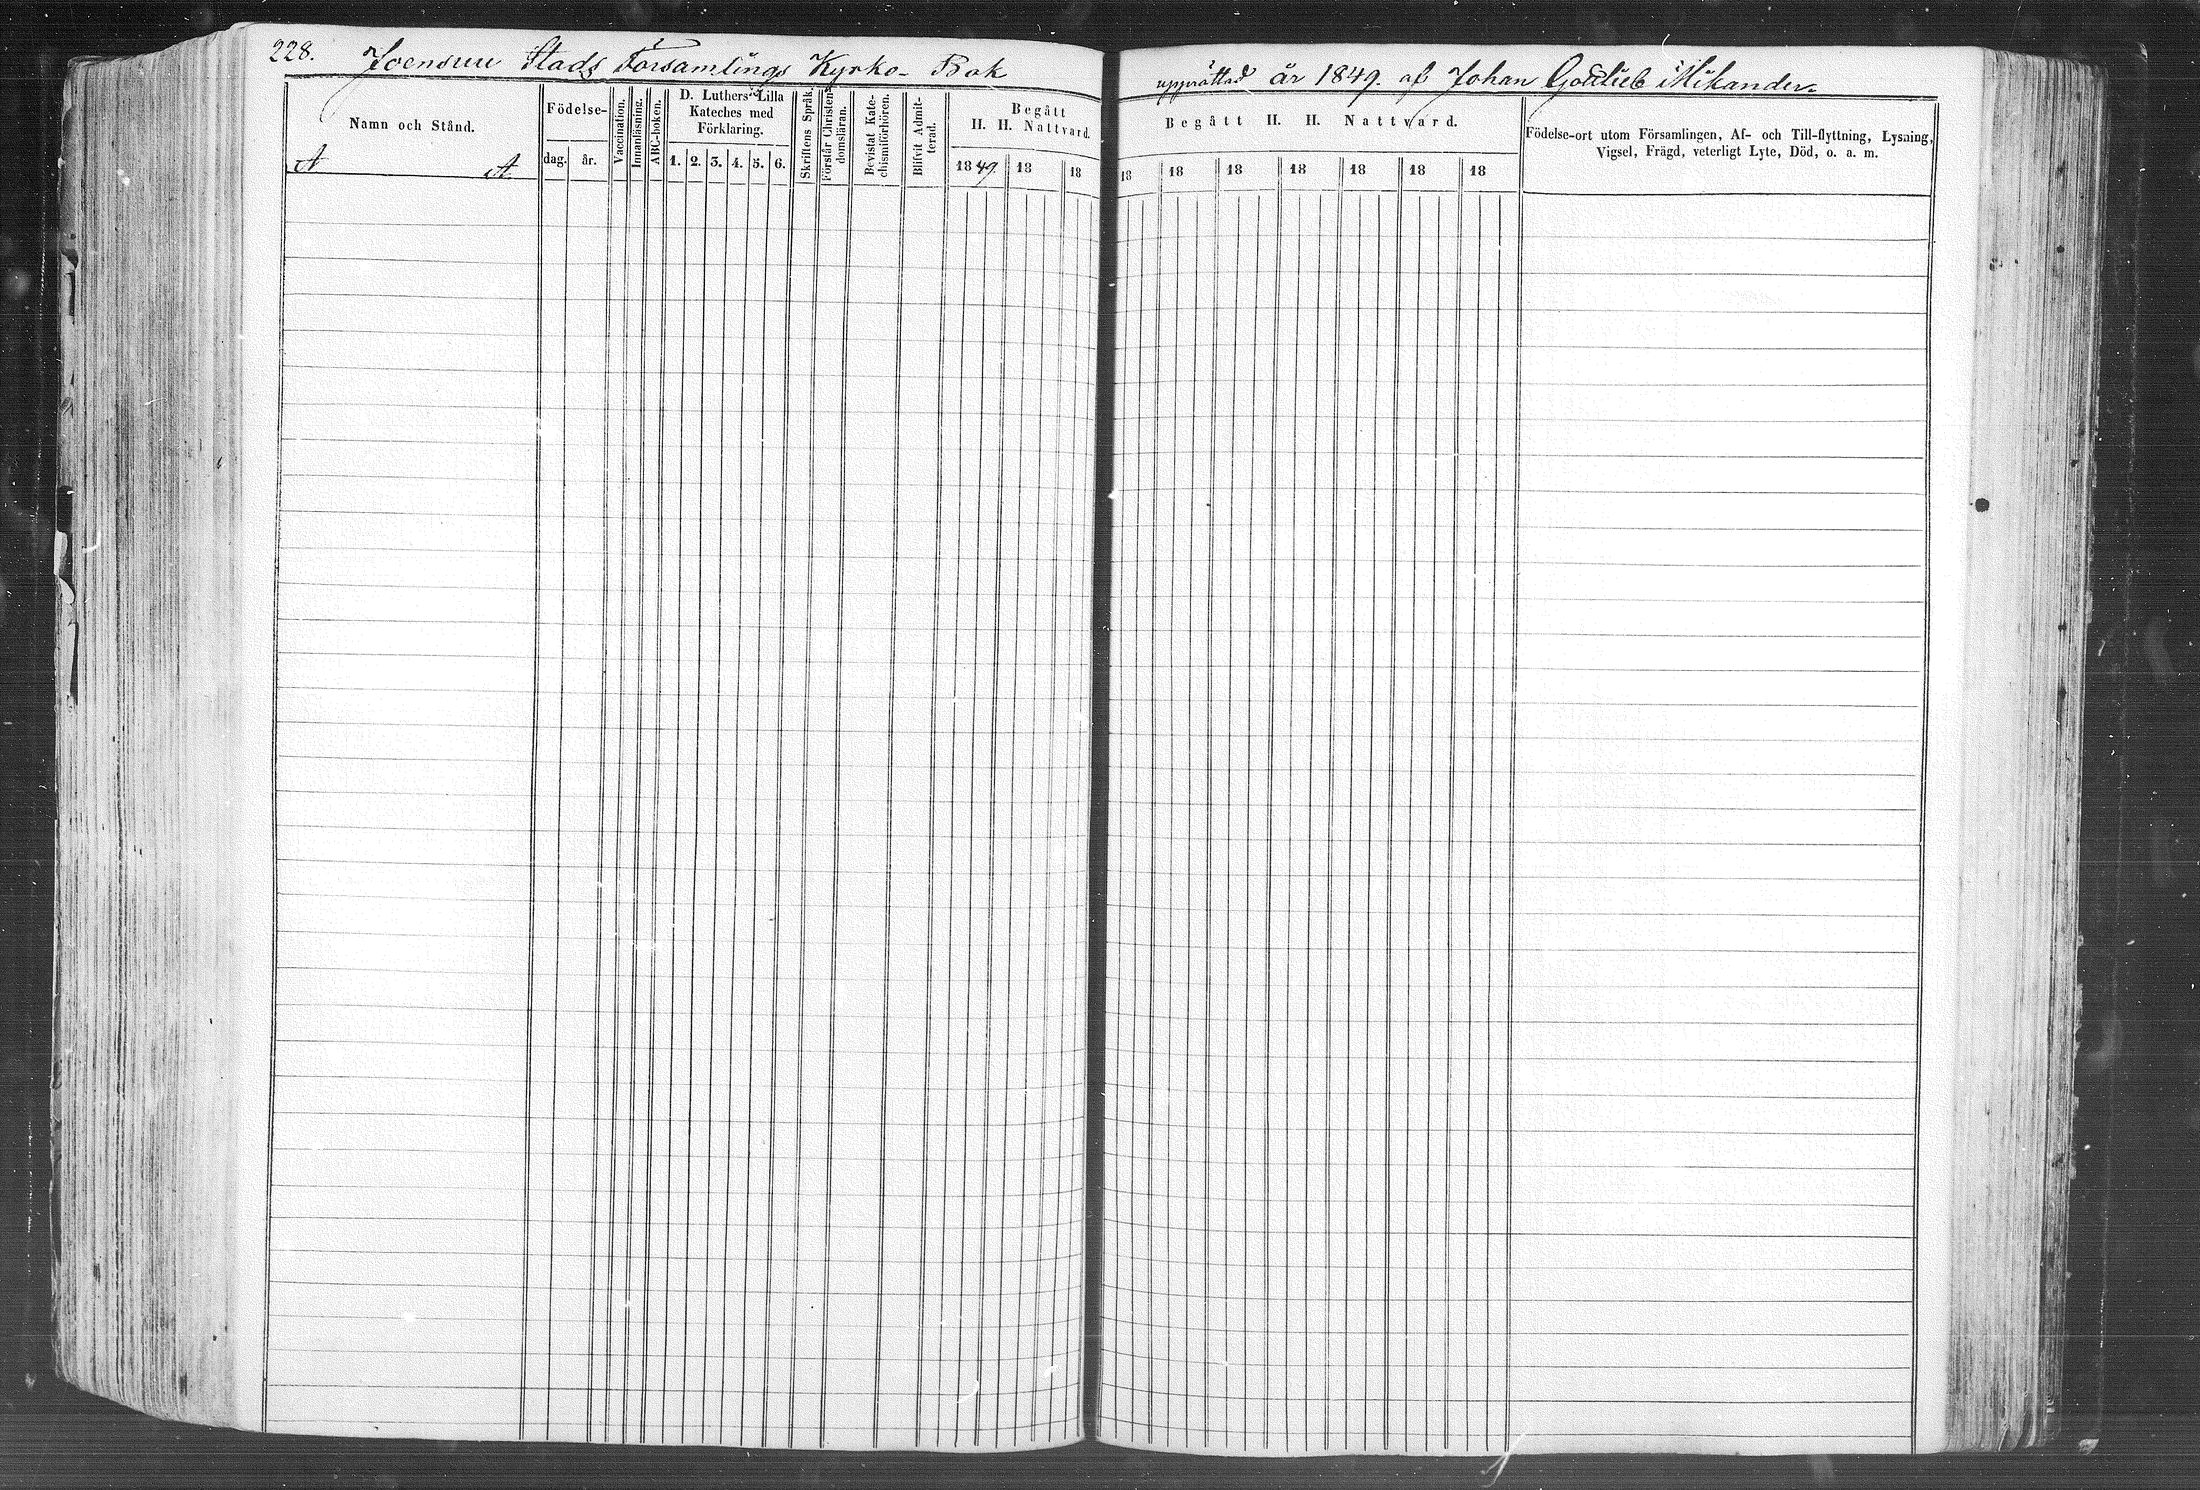 228. Joensuu Stads Församlings Kyrko-Bok upprättad år 1849. af Johan Gottlieb Mikander.
Namn och Stånd.
A A.
Födelse-
dag. år.
Vaccination.
Innanläsning.
ABC-boken.
D. Luthers Lilla
Kateches med
Förklaring.
1. 2. 3. 4. 5. 6.
Skriftens Språk.
Förstår Christen-
domsläran.
Bevistat Kate-
chismiförhören.
Blifvit Admit-
terad.
Begått
H. H. Nattvard.
1849. 18 18
Begått H. H. Nattvard.
18 18 18 18 18 18 18
Födelse-ort utom Församlingen, Af- och Till-flyttning, Lysning,
Vigsel, Frägd, veterligt Lyte, Död, o. a. m.